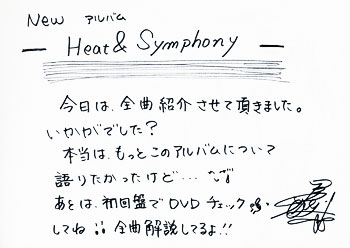 New アルバム
— Heat & Symphony —
今日は、全曲紹介させて頂きました。
いかがでした？
本当は、もっとこのアルバムについて
語りたかったけど…
あとは、初回盤でDVDチェック
してね!! 全曲解説してるよ!!